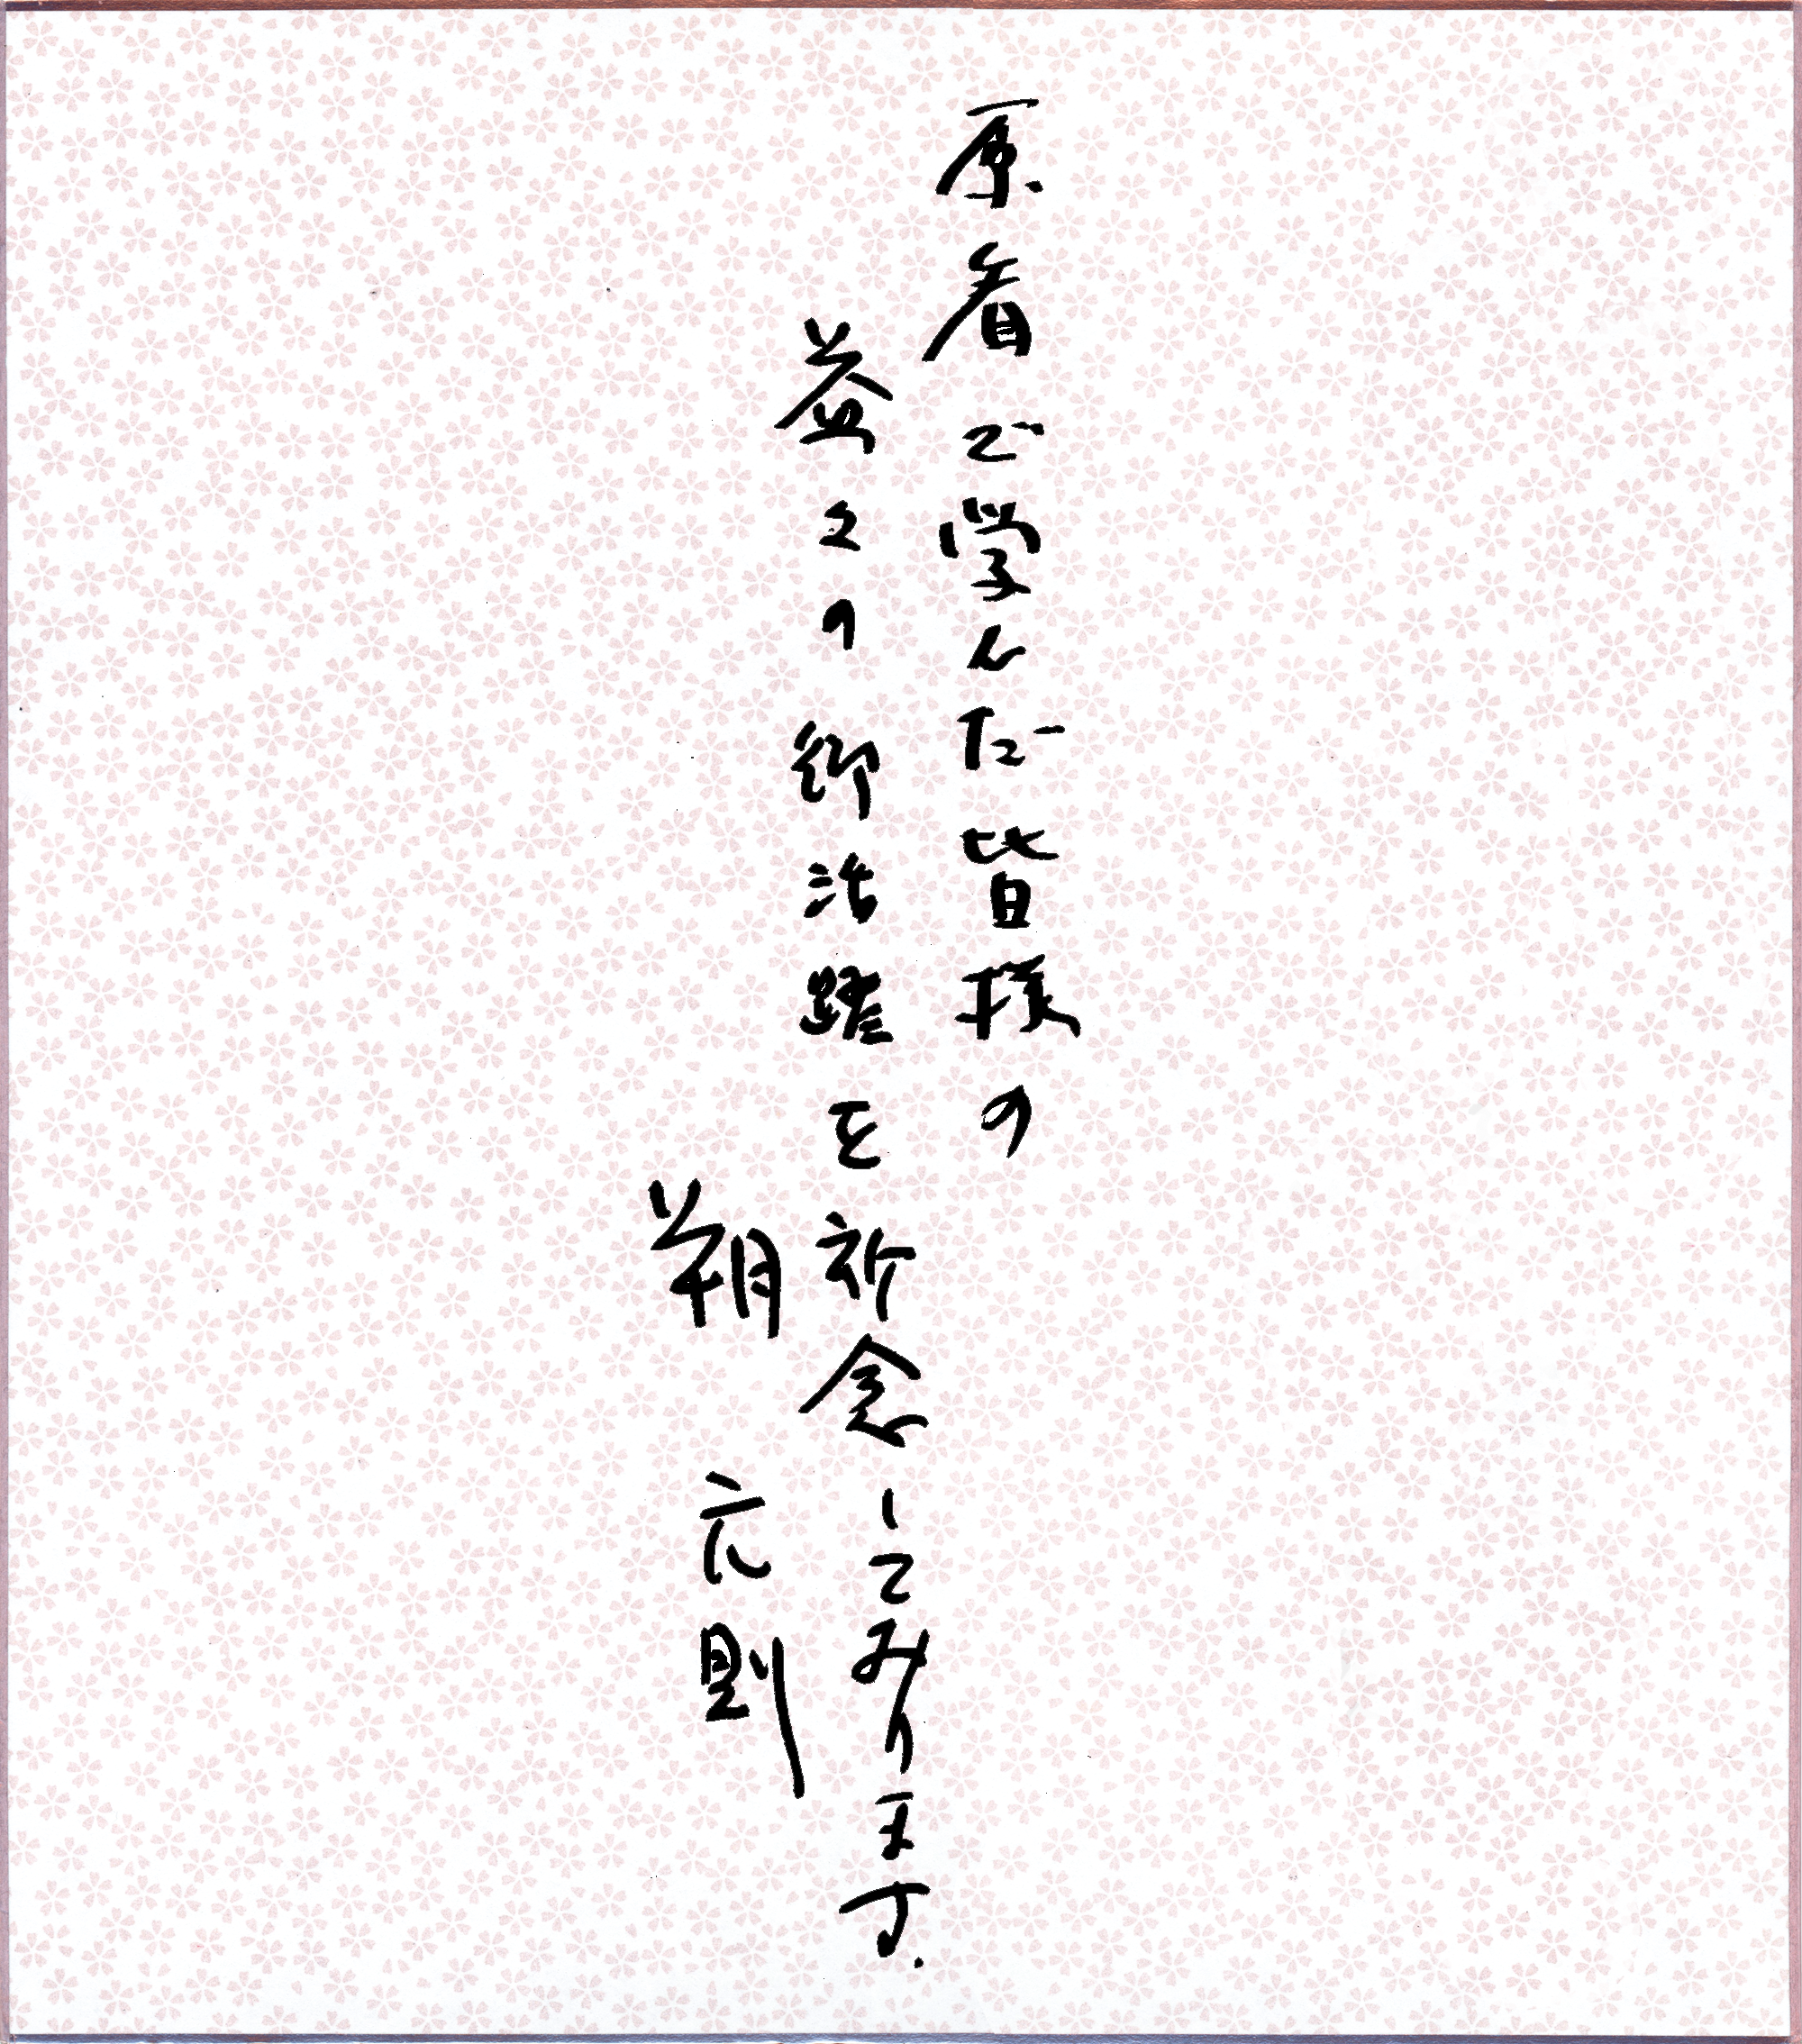 原看で学んだ皆様の
益々の御活躍を祈念してみります.
朔 元則